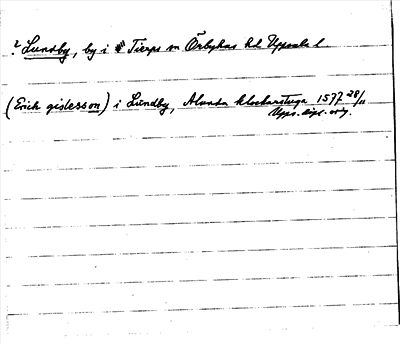 ? Lundby, by i Tierps sn Örbyhus hd Uppsala l.
(Erick gislesson) i Lundby, Alunda klockarstuga 1577 28/11
Upps. dipl. orig.